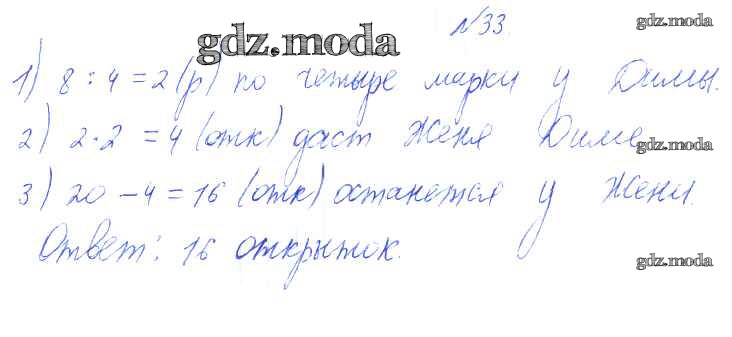 №33.
gdz.moda
gdz.moda
1) 8 : 4 = 2 (р) по четыре марки у Димы.
2) 2 · 2 = 4 (отк) даст Женя Диме
gdz.moda
3) 20 – 4 = 16 (отк) останется у Жени.
gdz.moda
Ответ: 16 открыток.
gdz.moda